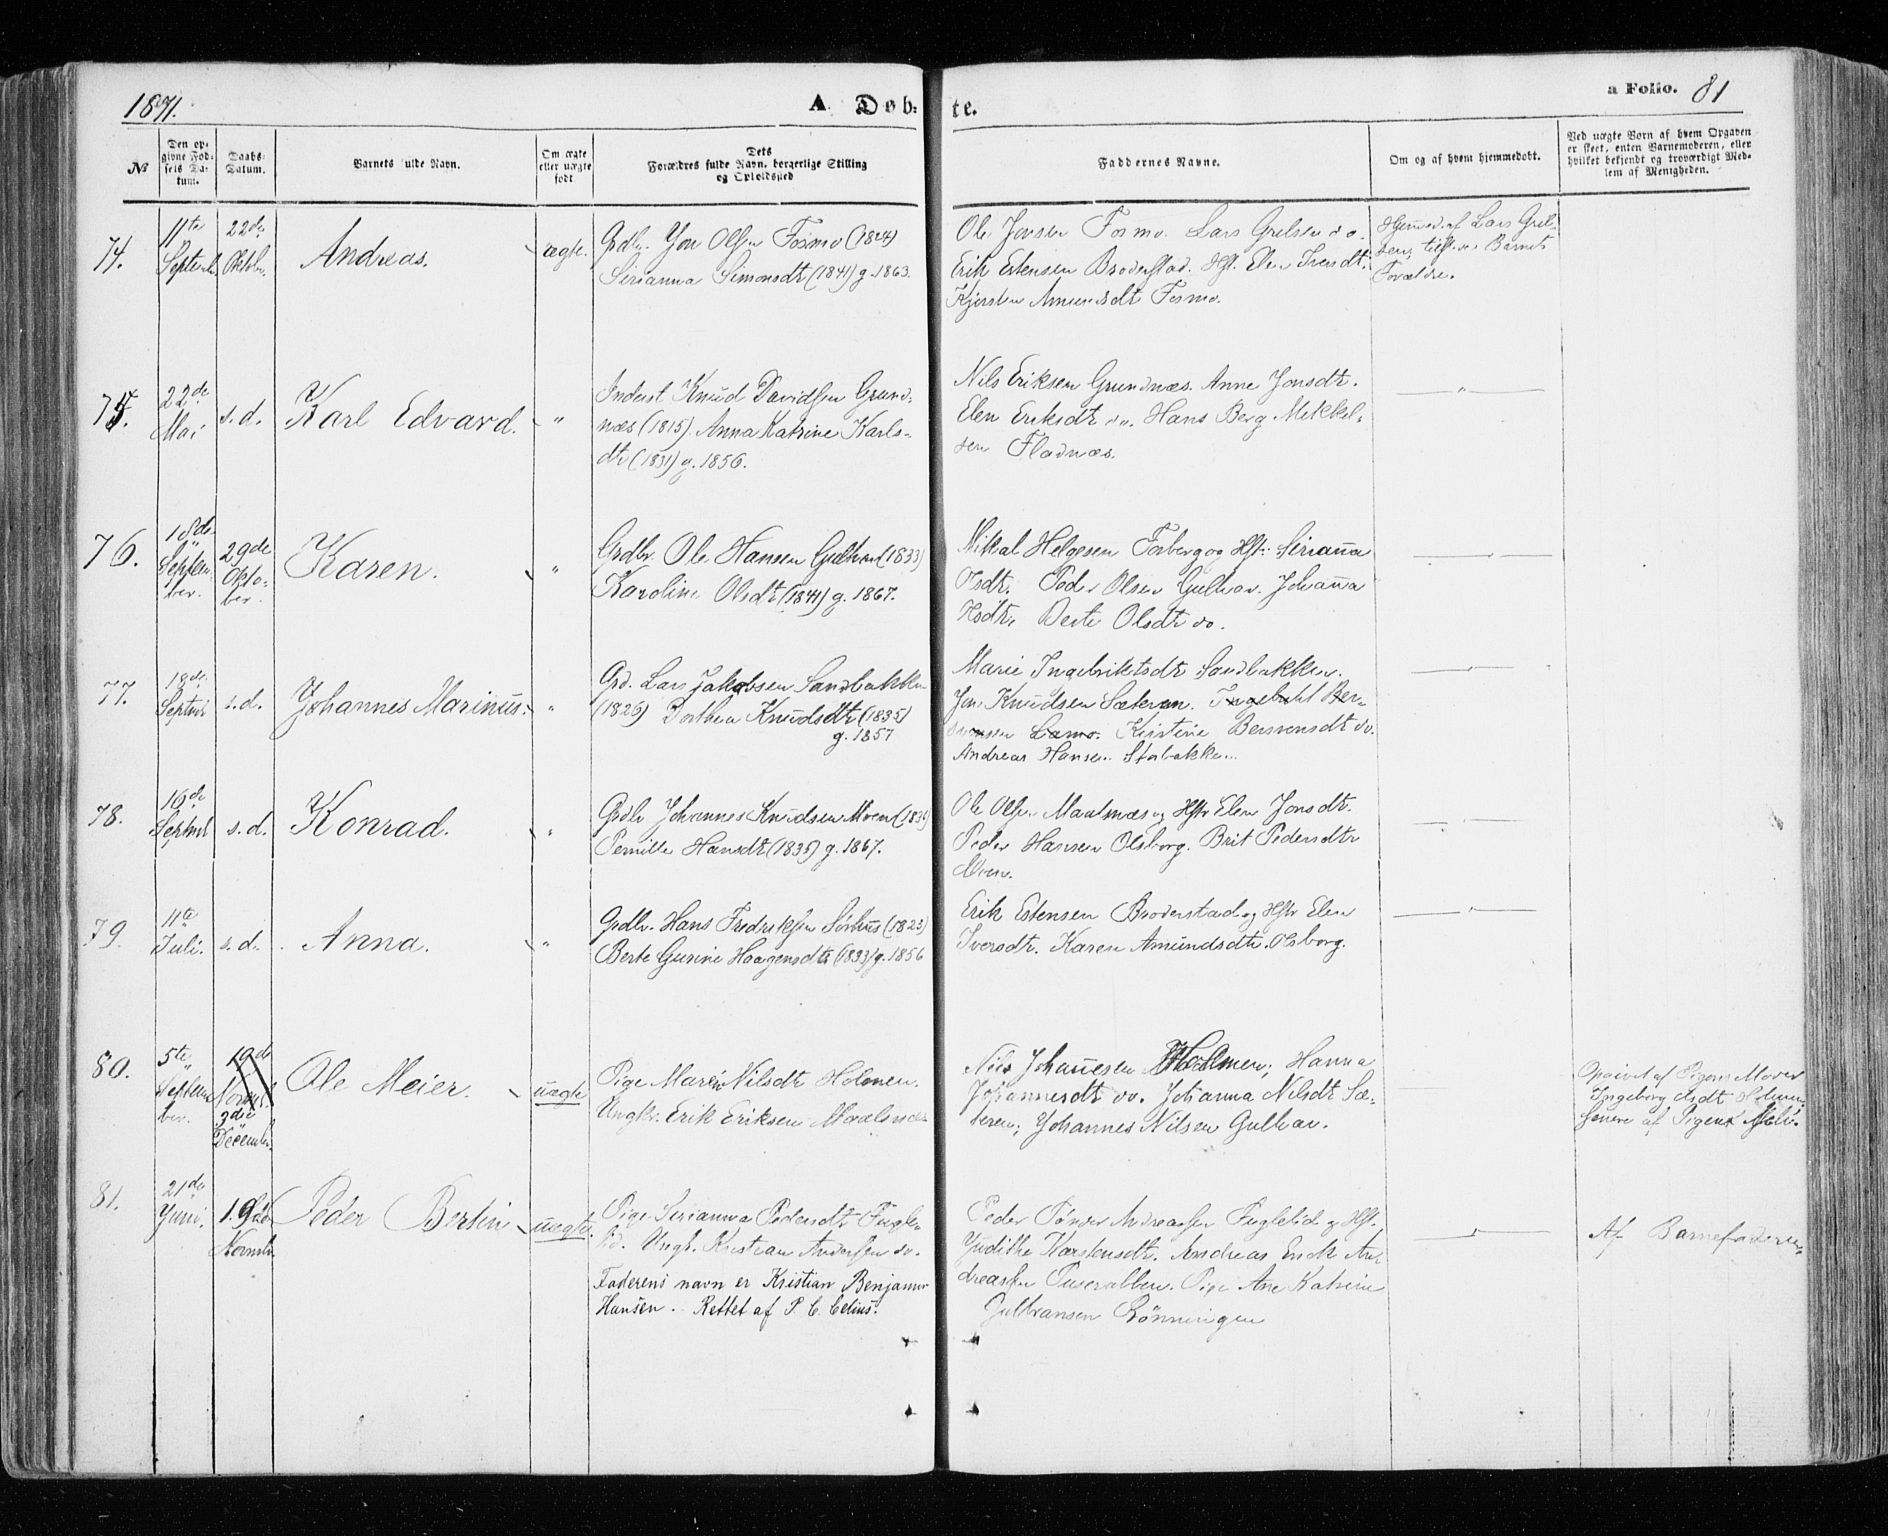 1871.
A Døb-
te.
a Folio. 81
№
Den op-
givne Fød-
sels Da-
tum.
Daabs-
Datum.
Barnets fulde Navn.
Om ægte
eller uægte
født.
Dets
Forældres fulde Navn, borgerlige Stilling
og Opholdssted
Faddernes Navne.
Om og af hvem hjemmedøbt.
Ved uægte Børn af hvem Opgaven
er skeet, enten Barnemoderen, eller
hvilket bekjendt og troværdigt Med-
lem af Menigheden.
74.
11te
Septemb
22de
Oktober
Andreas.
ægte.
Grdbr. Jon Olsen Fosmo (1824)
Serianna Simonsdt (1841) g. 1863.
Ole Jensen Fosmo. Lars Grelsen do.
Erik Estensen Broderstad. Hst. Elen Iversdt.
Kjersten Amundsdt Fosmo.
Hjemmed. af Lars Grel-
sen, Barnets
Forældre.
75.
22de
Mai
s. d.
Karl Edvard.
"
Inderst Knud Davidsen Grund-
næs (1815). Anna Katrine Karls-
dt (1831) g. 1856.
Nils Eriksen Grundnæs. Anne Jonsdt.
Elen Eriksdt do. Hans Berg. Mikkel-
sen Fladnæs.
"
76.
18de
Septem
ber.
29de
Okto-
ber.
Karen.
"
Grdbr. Ole Hansen Gulhav (1833)
Karoline Olsdt (1841) g. 1867.
Mikal Helgesen Forberg og Hst: Serianna
Olsdt. Peder Olsen Gulhav. Johanna
Hsdt, Berte Olsdt do.
"
77.
18de
Septmbr
s. d.
Johannes Marinus.
"
Grd. Lars Jakobsen Sandbakken
(1826) Dorthea Knudsdt (1835)
g. 1857
Marie Ingebriktsdt Sandbakken.
Jon Knudsen Sæteren. Ingebrikt Ber-
svensen Lamo. Kirstine Bersvensdt do.
Andreas Hansen Storbakken.
"
78.
16de
Septmb
s. d.
Konrad.
"
Grdbr Johannes Knudsen Moen (1835)
Pernille Hansdt (1835) g. 1867.
Ole Olsen Maalsnæs og Hstr Elen Jonsdt.
Peder Hansen Olsborg. Brit Pedersdtr
Moen.
"
79.
11te
Juli.
s. d.
Anna.
"
Grdbr. Hans Fredriksen Sørhus (1823)
Berte Gurine Haagensdt (1833) g. 1856
Erik Estensen Broderstad og Hstr Elen
Iversdt. Karen Amundsdt. Olsborg.
"
80.
5te
Septem
ber.
19de
Novmb
3die
Decemb
Ole Meier.
uægte
Pige Maren Nilsdt Holmen.
Ungkr. Erik Eriksen Maalsnæs
Nils Johannesen Holmen; Hanna
Johannesdt do. Johanna Nilsdt Sæ-
teren; Johannes Nilsen Gulhav.
Opgivet af Pigens Moder
Ingeborg Olsdt Holmen
senere af Pigen selv.
81.
21de
Juni.
19de
Novmbr
Peder Bertin
uægte.
Pige Serianna Pedersdt Fugle-
lid. Ungk. Kristian Andersen do.
Faderens navn er Kristian Benjamin
Hansen. Rettet af P. C. Celius.
Peder Tønder Andreassen Fuglelid og Hst.
Judithe Karstensdt. Andreas Enok An-
dreassen Punerabben. Pige Ane Katrine
Gulbransen Rønningen
"
Af Barnefaderen.